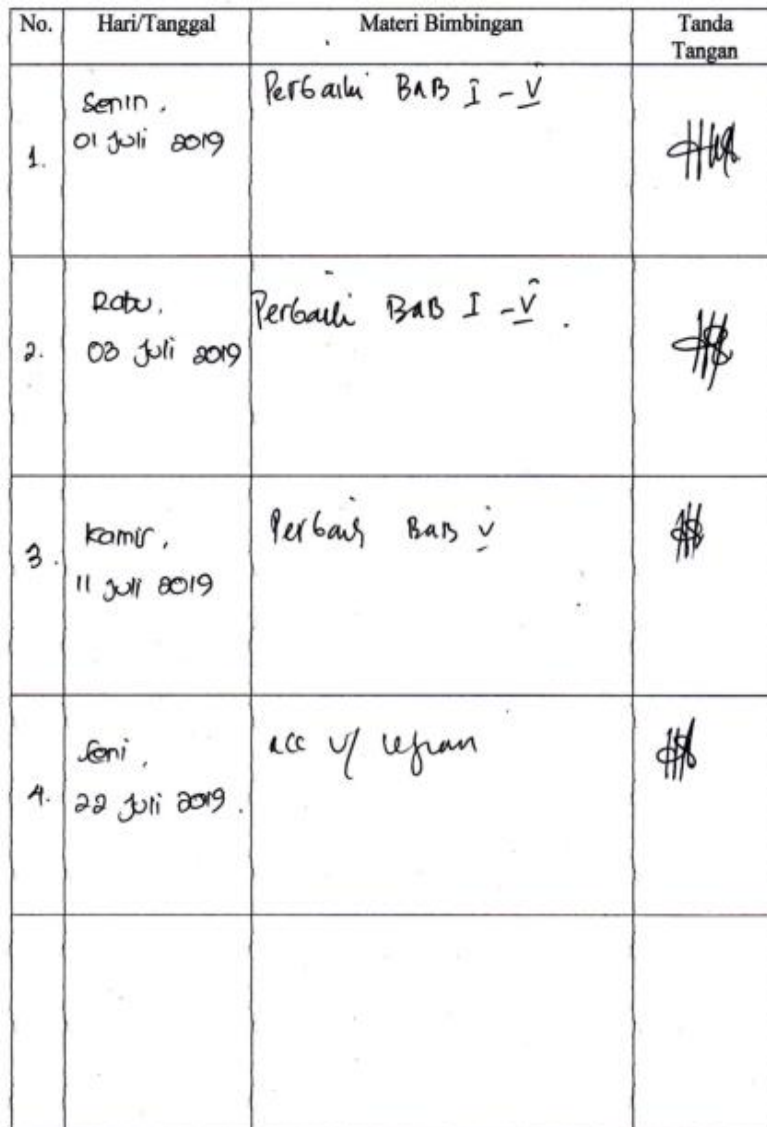 No. Hari/Tanggal Materi Bimbingan Tanda Tangan
1. Senin, 01 Juli 2019 Perbaiki BAB I - V
2. Rabu, 03 Juli 2019 Perbaiki BAB I - V.
3. Kamis, 11 Juli 2019 Perbaiki BAB V
4. 22 Juli 2019. acc u/